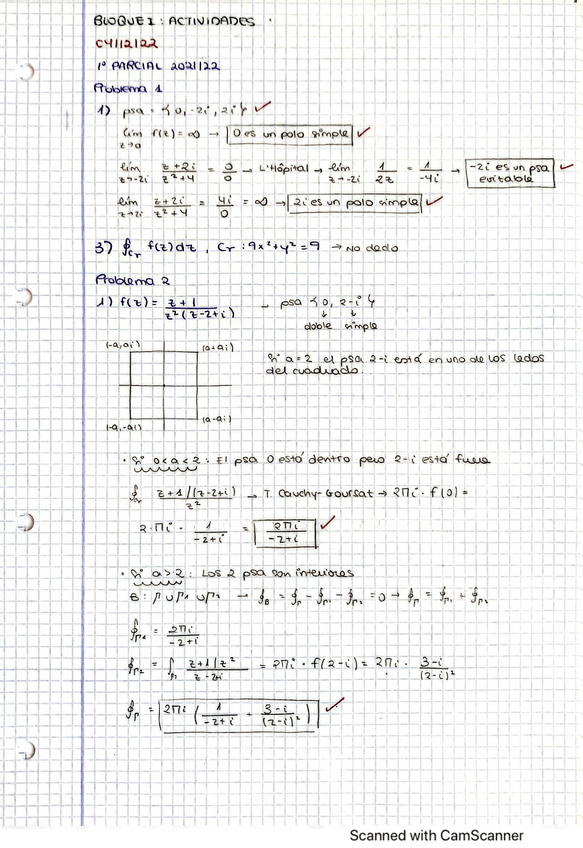 BLOQUE I: ACTIVIDADES
1º PARCIAL 2021/22
Problema 1
1) psa = { 0, -2i, 2i } ✓
lím z→0 f(z) = ∞ → 0 es un polo simple ✓
lím z→-2i (z+2i)/(z²+4) = 0/0 → L'Hôpital → lím z→-2i 1/(2z) = 1/(-4i) → -2i es un psa evitable ✓
lím z→2i (z+2i)/(z²+4) = 4i/0 = ∞ → 2i es un polo simple ✓
3) ∮Cr f(z)dz, Cr: 9x²+y²=9 → No dado
Problema 2
1) f(z) = (z+1)/(z²(z-2+i)) → psa { 0, 2-i }
↓ ↓
doble simple
(-a,ai) (a+ai)
Si a=2 el psa 2-i está en uno de los lados
del cuadrado.
(-a,-ai) (a-ai)
· Si 0<a<2: El psa 0 está dentro pero 2-i está fuera
∮ (z+1/(z-2+i))/z² → T. Cauchy-Goursat → 2πi · f(0) =
2·πi · 1/(-2+i) = 2πi/(-2+i) ✓
· Si a>2: Los 2 psa son interiores
B: Γ ∪ Γ1 ∪ Γ2 → ∮B = ∮Γ - ∮Γ1 - ∮Γ2 = 0 → ∮Γ = ∮Γ1 + ∮Γ2
∮Γ1 = 2πi/(-2+i)
= 2πi · f(2-i) = 2πi · (3-i)/(2-i)²
∮Γ = 2πi ✓
Scanned with CamScanner